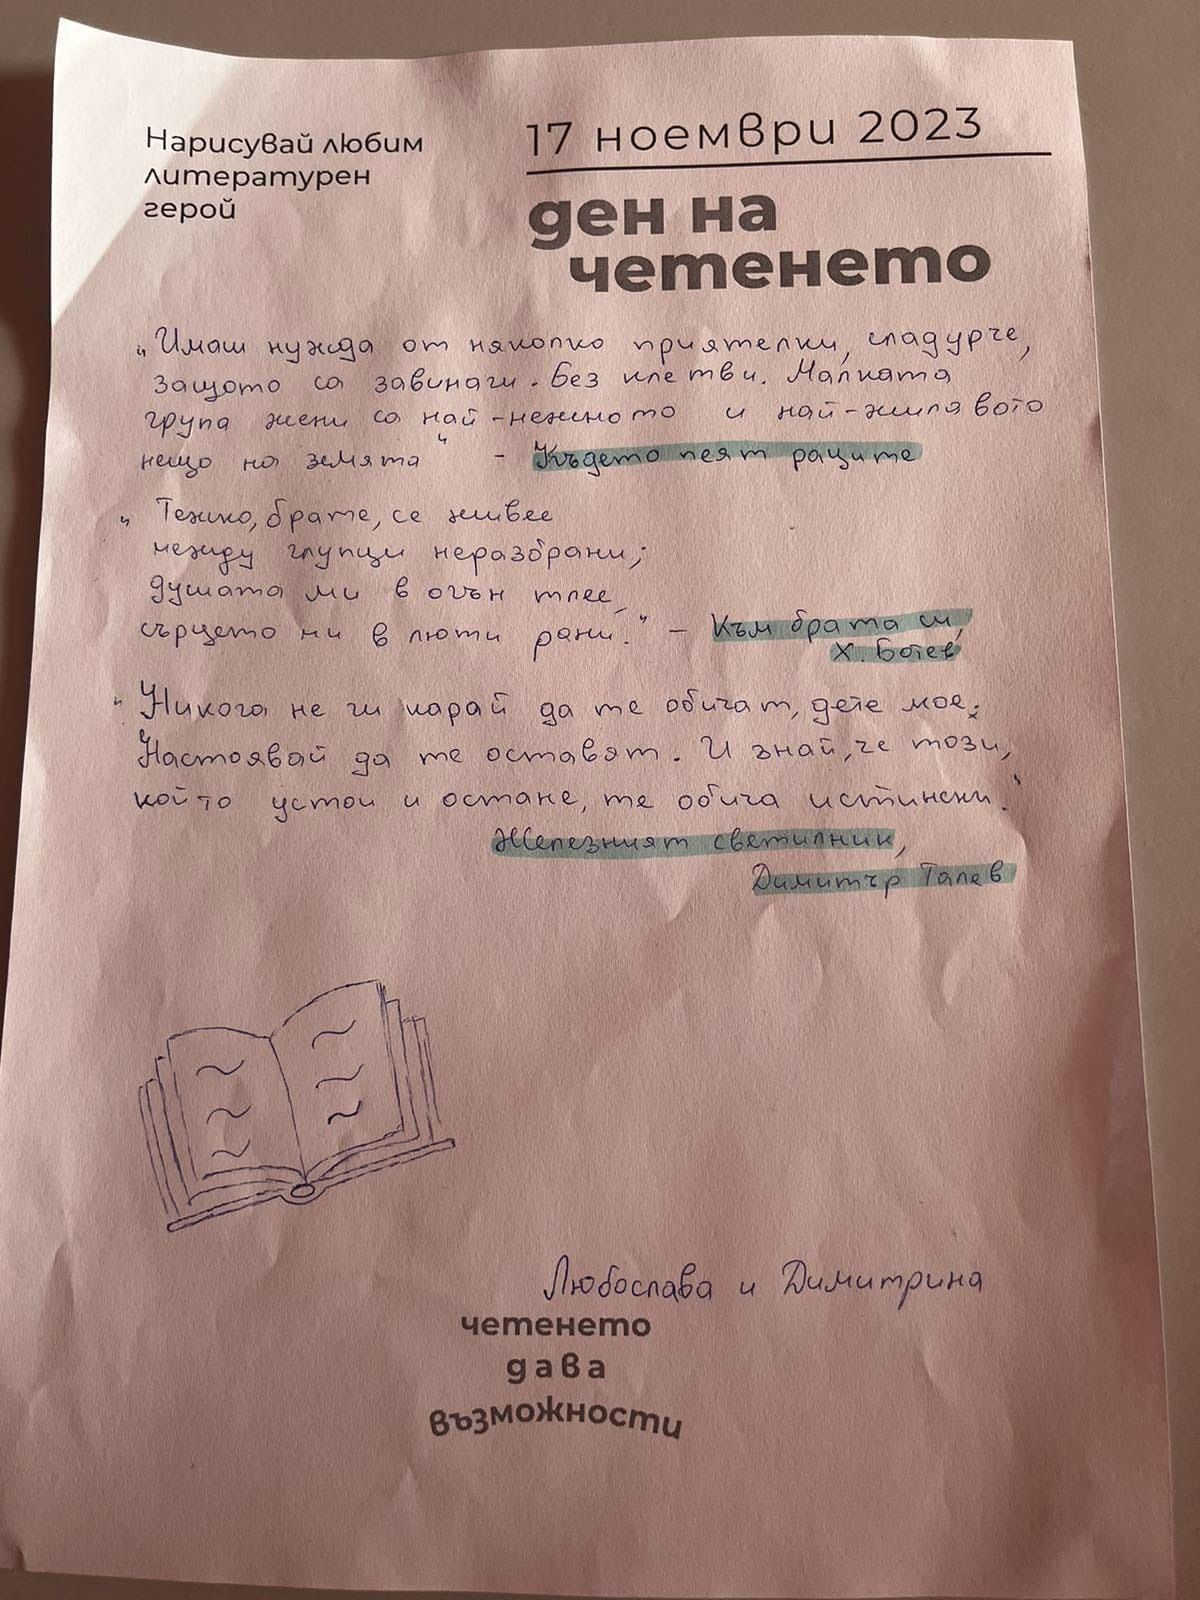 Нарисувай любим
литературен
герой
17 ноември 2023
ден на
четенето
„Имаш нужда от няколко приятелки, сладурче,
защото са завинаги. Без клетви. Малката
група жени са най-нежното и най-жилавото
нещо на земята" - Където пеят раците
„Тежко, брате, се живее
между глупци неразбрани;
душата ми в огън тлее,
сърцето ми в люти рани." - Към брата си,
Х. Ботев
„Никога не ги карай да те обичат, дете мое.
Настоявай да те оставят. И знай, че този,
който устои и остане, те обича истински."
Железният светилник,
Димитър Талев
Любослава и Димитрина
четенето
дава
възможности